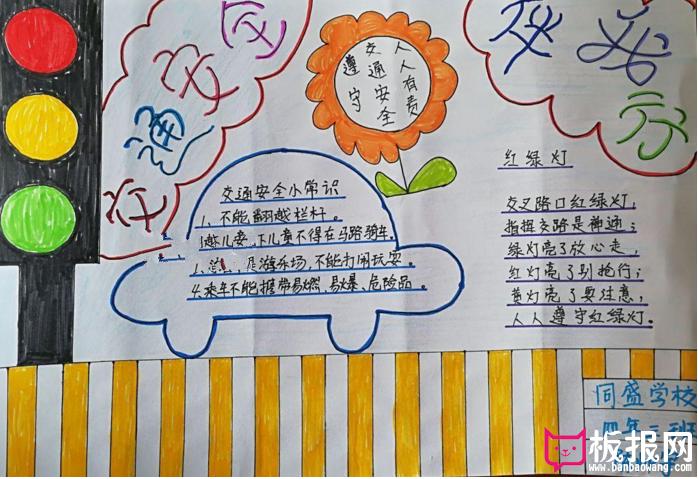 交通安全
人人有责
交通安全
遵守
交通安全小常识
1、不能翻越栏杆。
下儿童不得在马路骑车
游乐场,不能打闹玩耍
4.乘车不能携带易燃、易爆、危险品。
红绿灯
交叉路口红绿灯,
指挥交路是神通;
绿灯亮了放心走,
红灯亮了别抢行;
黄灯亮了要注意,
人人遵守红绿灯。
同盛学校
四年二班
板报网
www.banbaowang.com